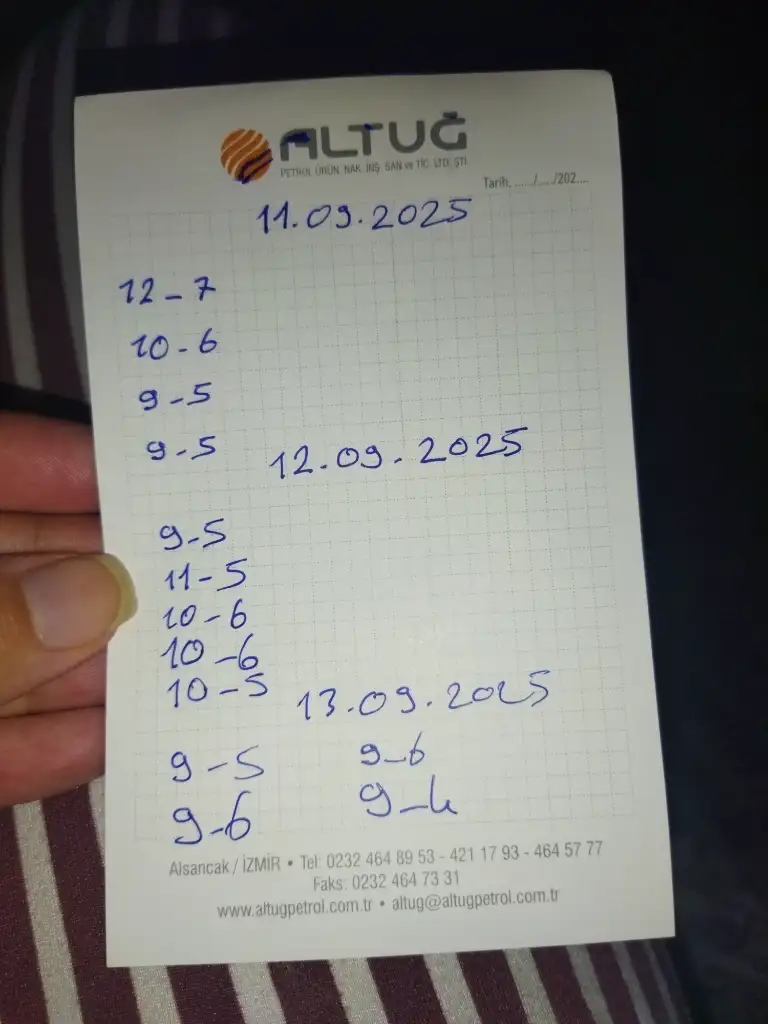 ALTUĞ
PETROL ÜRÜN. NAK. İNŞ. SAN ve TİC. LTD. ŞTİ.
Tarih, ....../...../202....
11.09.2025
12-7
10-6
9-5
9-5
12.09.2025
9-5
11-5
10-6
10-6
10-5
13.09.2025
9-5 9-6
9-6 9-4
Alsancak / İZMİR • Tel: 0232 464 89 53 - 421 17 93 - 464 57 77
Faks: 0232 464 73 31
www.altugpetrol.com.tr • altug@altugpetrol.com.tr